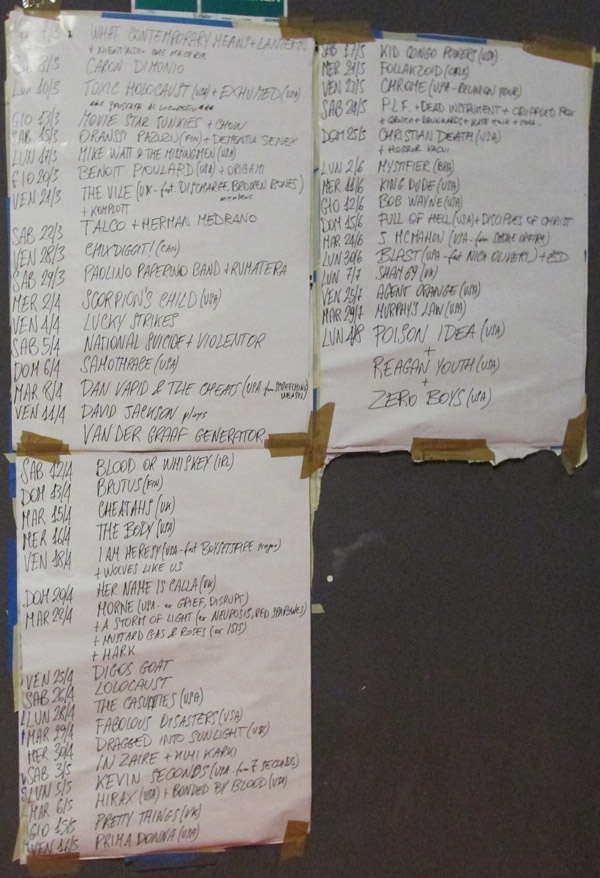 WHAT CONTEMPORARY MEANS + LANTERN
8/3 CARON DIMONIO
LUN 10/3 TOXIC HOLOCAUST (USA) + EXHUMED (USA)
GIO 13/3 MOVIE STAR JUNKIES + CHOW
SAB 15/3 ORANSSI PAZUZU (FIN) + DEMENTIA SENEX
LUN 17/3 MIKE WATT & THE MISSINGMEN (USA)
GIO 20/3 BENOIT PIOULARD (USA) + ORIGAMI
VEN 21/3 THE VILE (UK - feat. DISCHARGE, BROKEN BONES)
members
+ KOMPLOTT
SAB 22/3 TALCO + HERMAN MEDRANO
VEN 28/3 CHIXDIGGIT! (CAN)
SAB 29/3 PAOLINO PAPERINO BAND + RUMATERA
MER 2/4 SCORPION'S CHILD (USA)
VEN 4/4 LUCKY STRIKES
SAB 5/4 NATIONAL SUICIDE + VIOLENTOR
DOM 6/4 SAMOTHRACE (USA)
MAR 8/4 DAN VAPID & THE CHEATS (USA - from SCREECHING WEASEL)
VEN 11/4 DAVID JACKSON plays
VAN DER GRAAF GENERATOR
SAB 12/4 BLOOD OR WHISKEY (IRL)
DOM 13/4 BRUTUS
MAR 15/4 CHEATAHS (UK)
MER 16/4 THE BODY (USA)
VEN 18/4 I AM HERESY (USA - feat BOYSETSFIRE singer)
+ WOLVES LIKE US
DOM 20/4 HER NAME IS CALLA (UK)
MAR 22/4 MORNE (USA - ex GRIEF, DISRUPT)
+ A STORM OF LIGHT (ex NEUROSIS, RED SPAROWES)
+ MUSTARD GAS & ROSES (ex ISIS)
+ HARK
VEN 25/4 DIGOS GOAT
SAB 26/4 LOLOCAUST
LUN 28/4 THE CASUALTIES (USA)
MAR 29/4 FABOLOUS DISASTERS (USA)
MER 30/4 DRAGGED INTO SUNLIGHT (UK)
SAB 3/5 IN ZAIRE + KUHI KARKI
LUN 5/5 KEVIN SECONDS (USA - from 7 SECONDS)
MAR 6/5 HIRAX (USA) + BONDED BY BLOOD (USA)
GIO 15/5 PRETTY THINGS (UK)
VEN 16/5 PRIMA DONNA (USA)
SAB 17/5 KID CONGO POWERS (USA)
MER 21/5 FOLLAKZOID
VEN 23/5 CHROME (USA - REUNION TOUR)
SAB 24/5 P.L.F. + DEAD INSTRUMENT + CRIPPLED FOX
DOM 25/5 CHRISTIAN DEATH (USA)
+ HORROR VACUI
LUN 2/6 MYSTIFIER (BRA)
MER 11/6 KING DUDE (USA)
GIO 12/6 BOB WAYNE (USA)
DOM 15/6 FULL OF HELL (USA) + DISCIPLES OF CHRIST
MAR 24/6 S. MCMAHON (USA - from SMOKE OFFERY)
LUN 30/6 BLAST (USA - feat NICK OLIVERI) +
LUN 7/7 SHAM 69 (UK)
VEN 25/7 AGENT ORANGE (USA)
MAR 29/7 MURPHY'S LAW (USA)
LUN 4/8 POISON IDEA (USA)
+
REAGAN YOUTH (USA)
+
ZERO BOYS (USA)